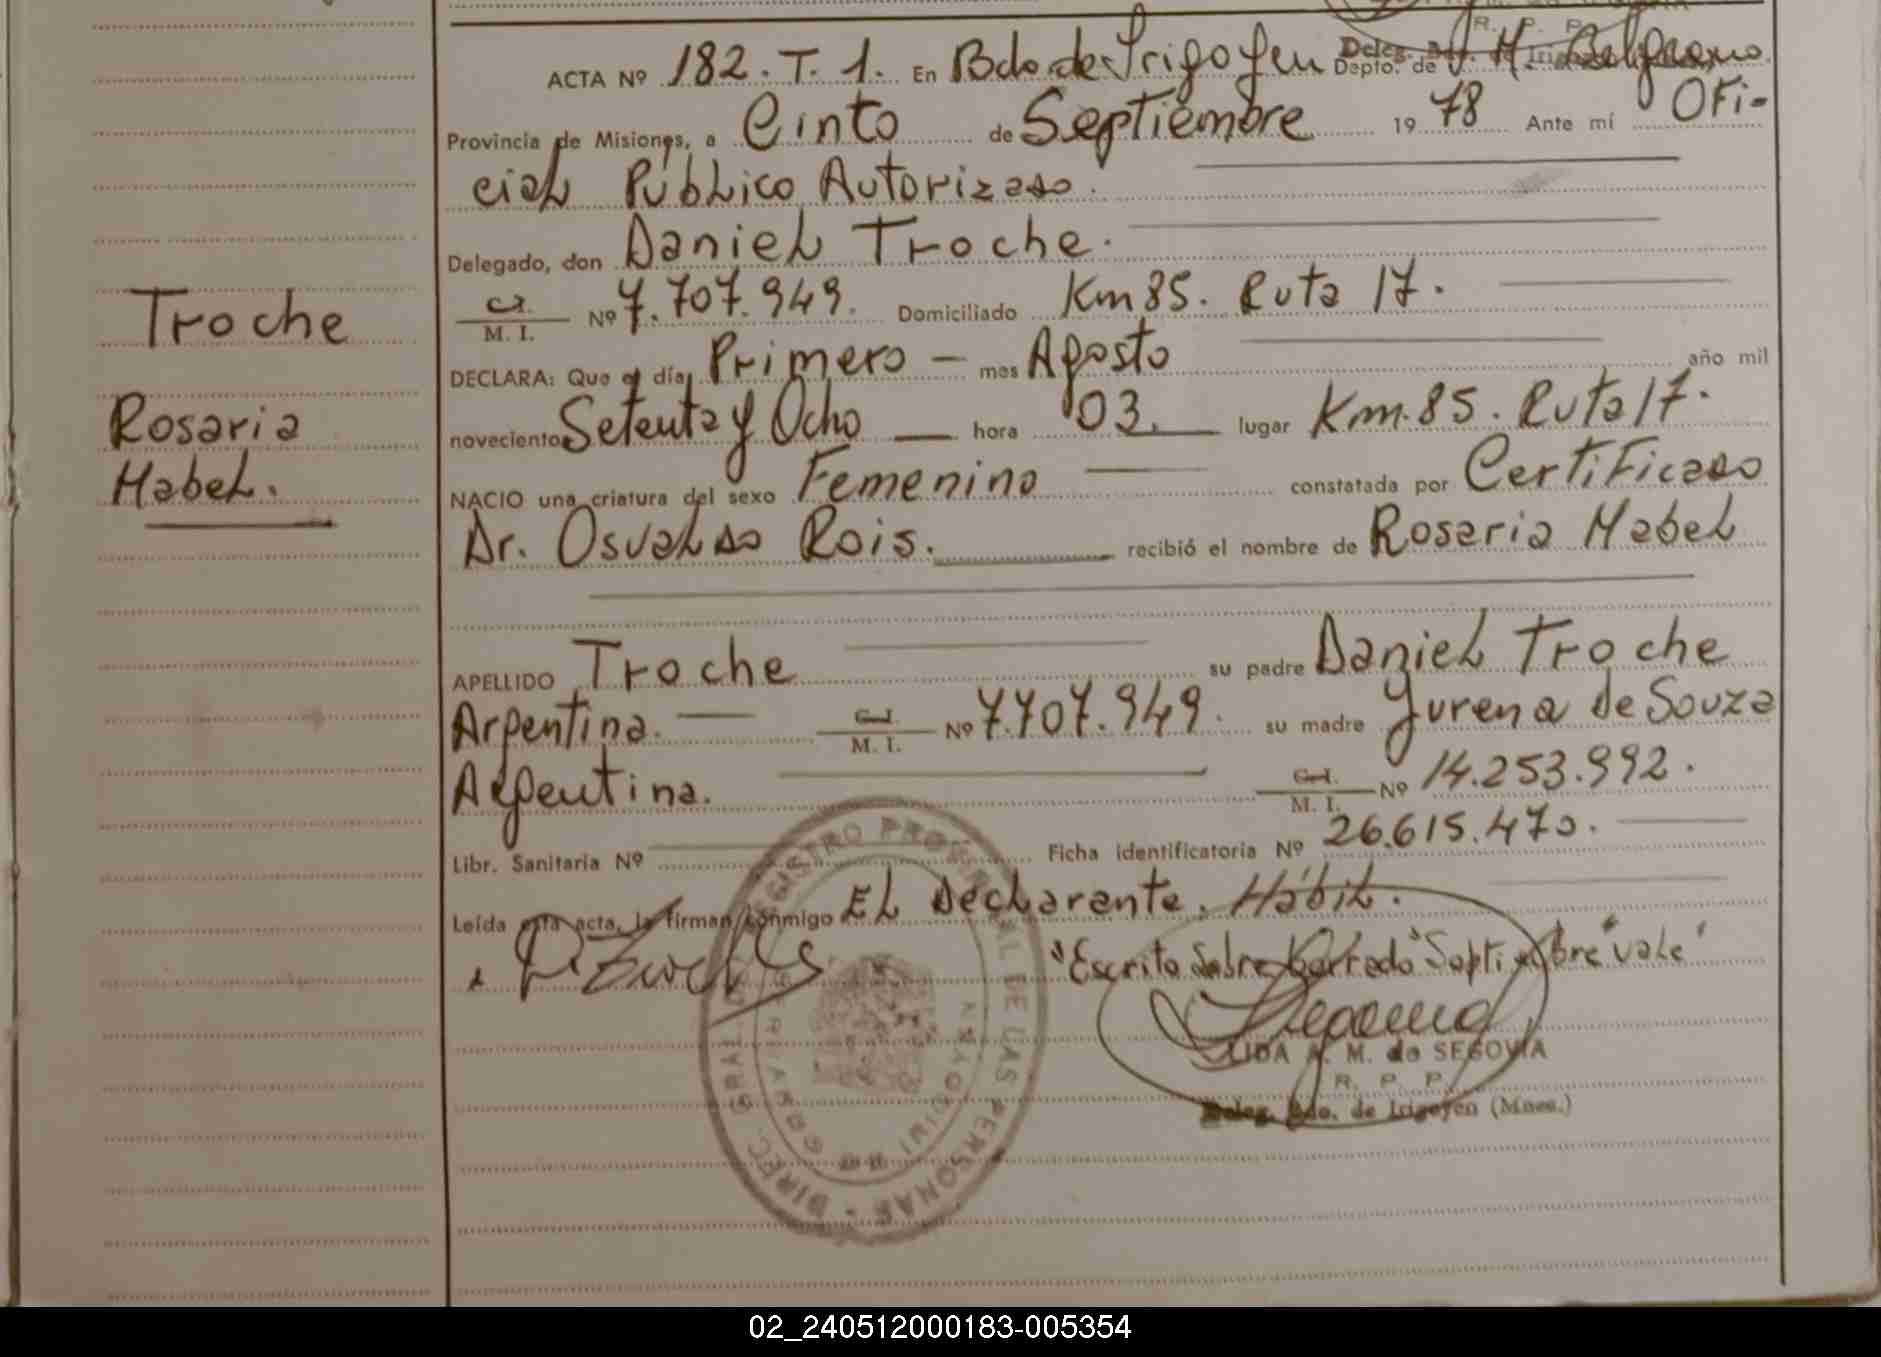 ACTA Nº 182. T. 1. En Bdo. de Irigoyen Depto. de M. Belgrano.
Provincia de Misiones, a Cinto de Septiembre 1978 Ante mí Ofi-
cial Público Autorizado.
Delegado, don Daniel Troche.
C.I. M. I. Nº 7.707.949. Domiciliado Km 85. Ruta 17.
Troche
DECLARA: Que el día Primero — mes Agosto año mil
Rosaria
novecientos Setenta y Ocho — hora 03. lugar Km. 85. Ruta 17.
Mabel.
NACIO una criatura del sexo Femenino constatada por Certificado
Dr. Osvaldo Rois. recibió el nombre de Rosaria Mabel
APELLIDO Troche su padre Daniel Troche
Argentina. — C.I. M. I. Nº 7.707.949. su madre Yurena de Souza
Argentina. C.I. M. I. Nº 14.253.992.
Libr. Sanitaria Nº Ficha identificatoria Nº 26.615.470.
Leída esta acta, la firman conmigo El Declarante. Hábil.
"Escrito Sobre Borrado "Septiembre" vale"
LIDA A. M. de SEGOVIA
R. P. P.
Deleg. Bdo. de Irigoyen (Mnes.)
DIREC. GRAL. REGISTRO PROVINCIAL DE LAS PERSONAS
02_240512000183-005354